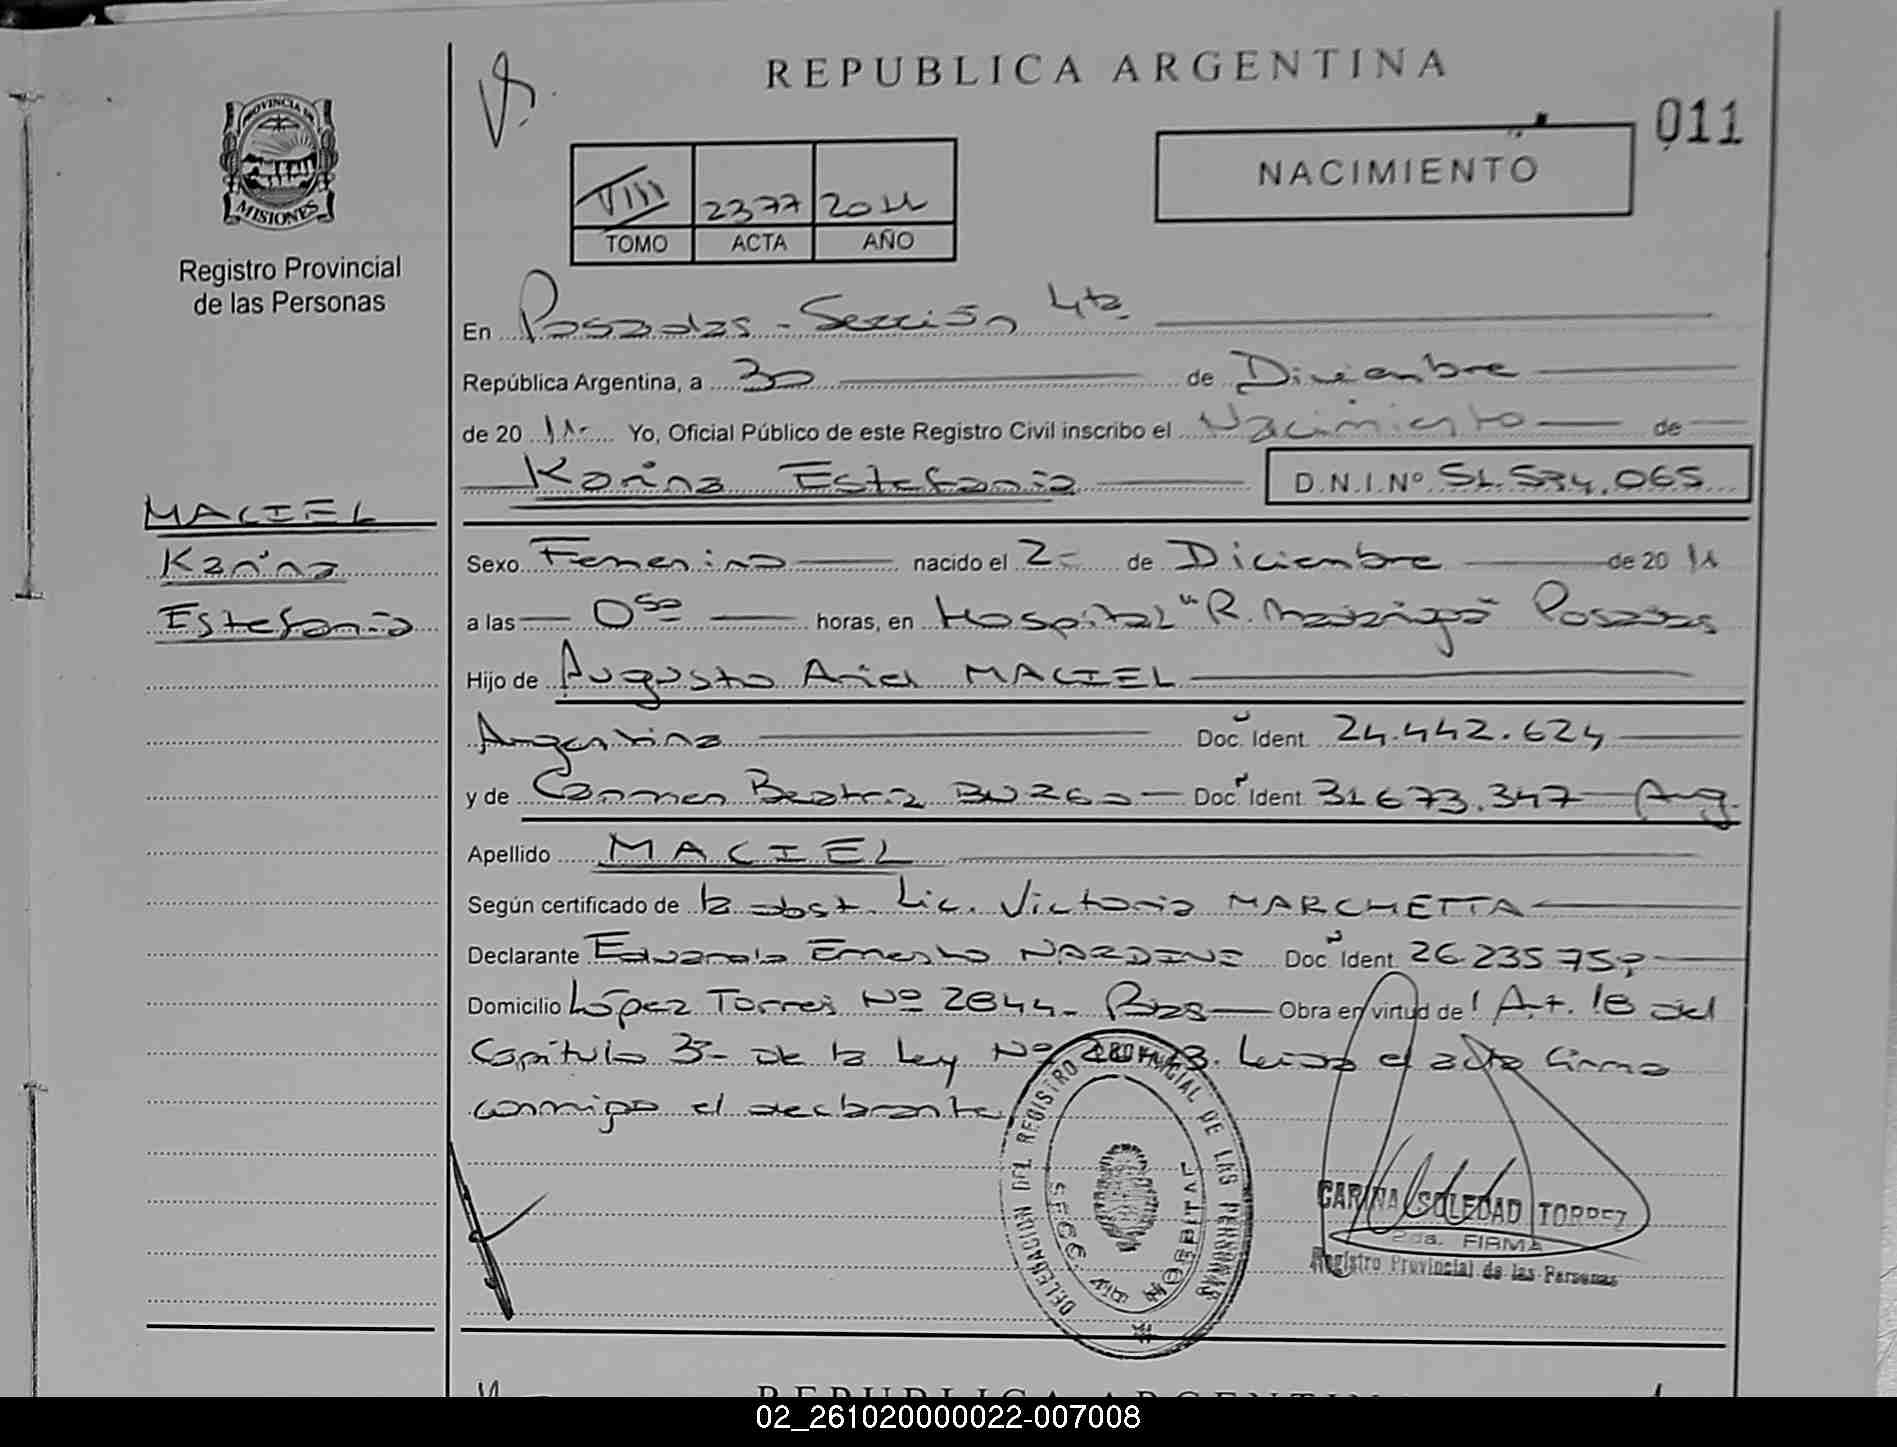 REPUBLICA ARGENTINA
011
NACIMIENTO
VIII 2377 2011
TOMO ACTA AÑO
PROVINCIA DE
MISIONES
Registro Provincial
de las Personas
En Posadas - Sección 4ta.
República Argentina, a 30 de Diciembre
de 2011 Yo, Oficial Público de este Registro Civil inscribo el Nacimiento de
Karina Estefania D.N.I.Nº 51.534.065
MACIEL
Karina
Estefania
Sexo Femenino nacido el 2- de Diciembre de 2011
a las 0 50 horas, en Hospital "R. Madariaga" Posadas
Hijo de Augusto Ariel MACIEL
Argentina Doc. Ident. 24.442.624
y de Carmen Beatriz Doc. Ident. 31.673.347 Arg.
Apellido MACIEL
Según certificado de la obst. Lic. Victoria MARCHETTA
Declarante Eduardo Ernesto NARDINI Doc. Ident. 26.235.75
Domicilio López Torres Nº 2844 - Pdas Obra en virtud del Art. 18 del
Capítulo 3- de la Ley Nº Leida el acta firma
conmigo el declarante
DELEGACION DEL REGISTRO PROVINCIAL DE LAS PERSONAS
SECC. 4ta
CARINA SOLEDAD TORREZ
2da. FIRMA
Registro Provincial de las Personas
REPUBLICA ARGENTIN
02_261020000022-007008